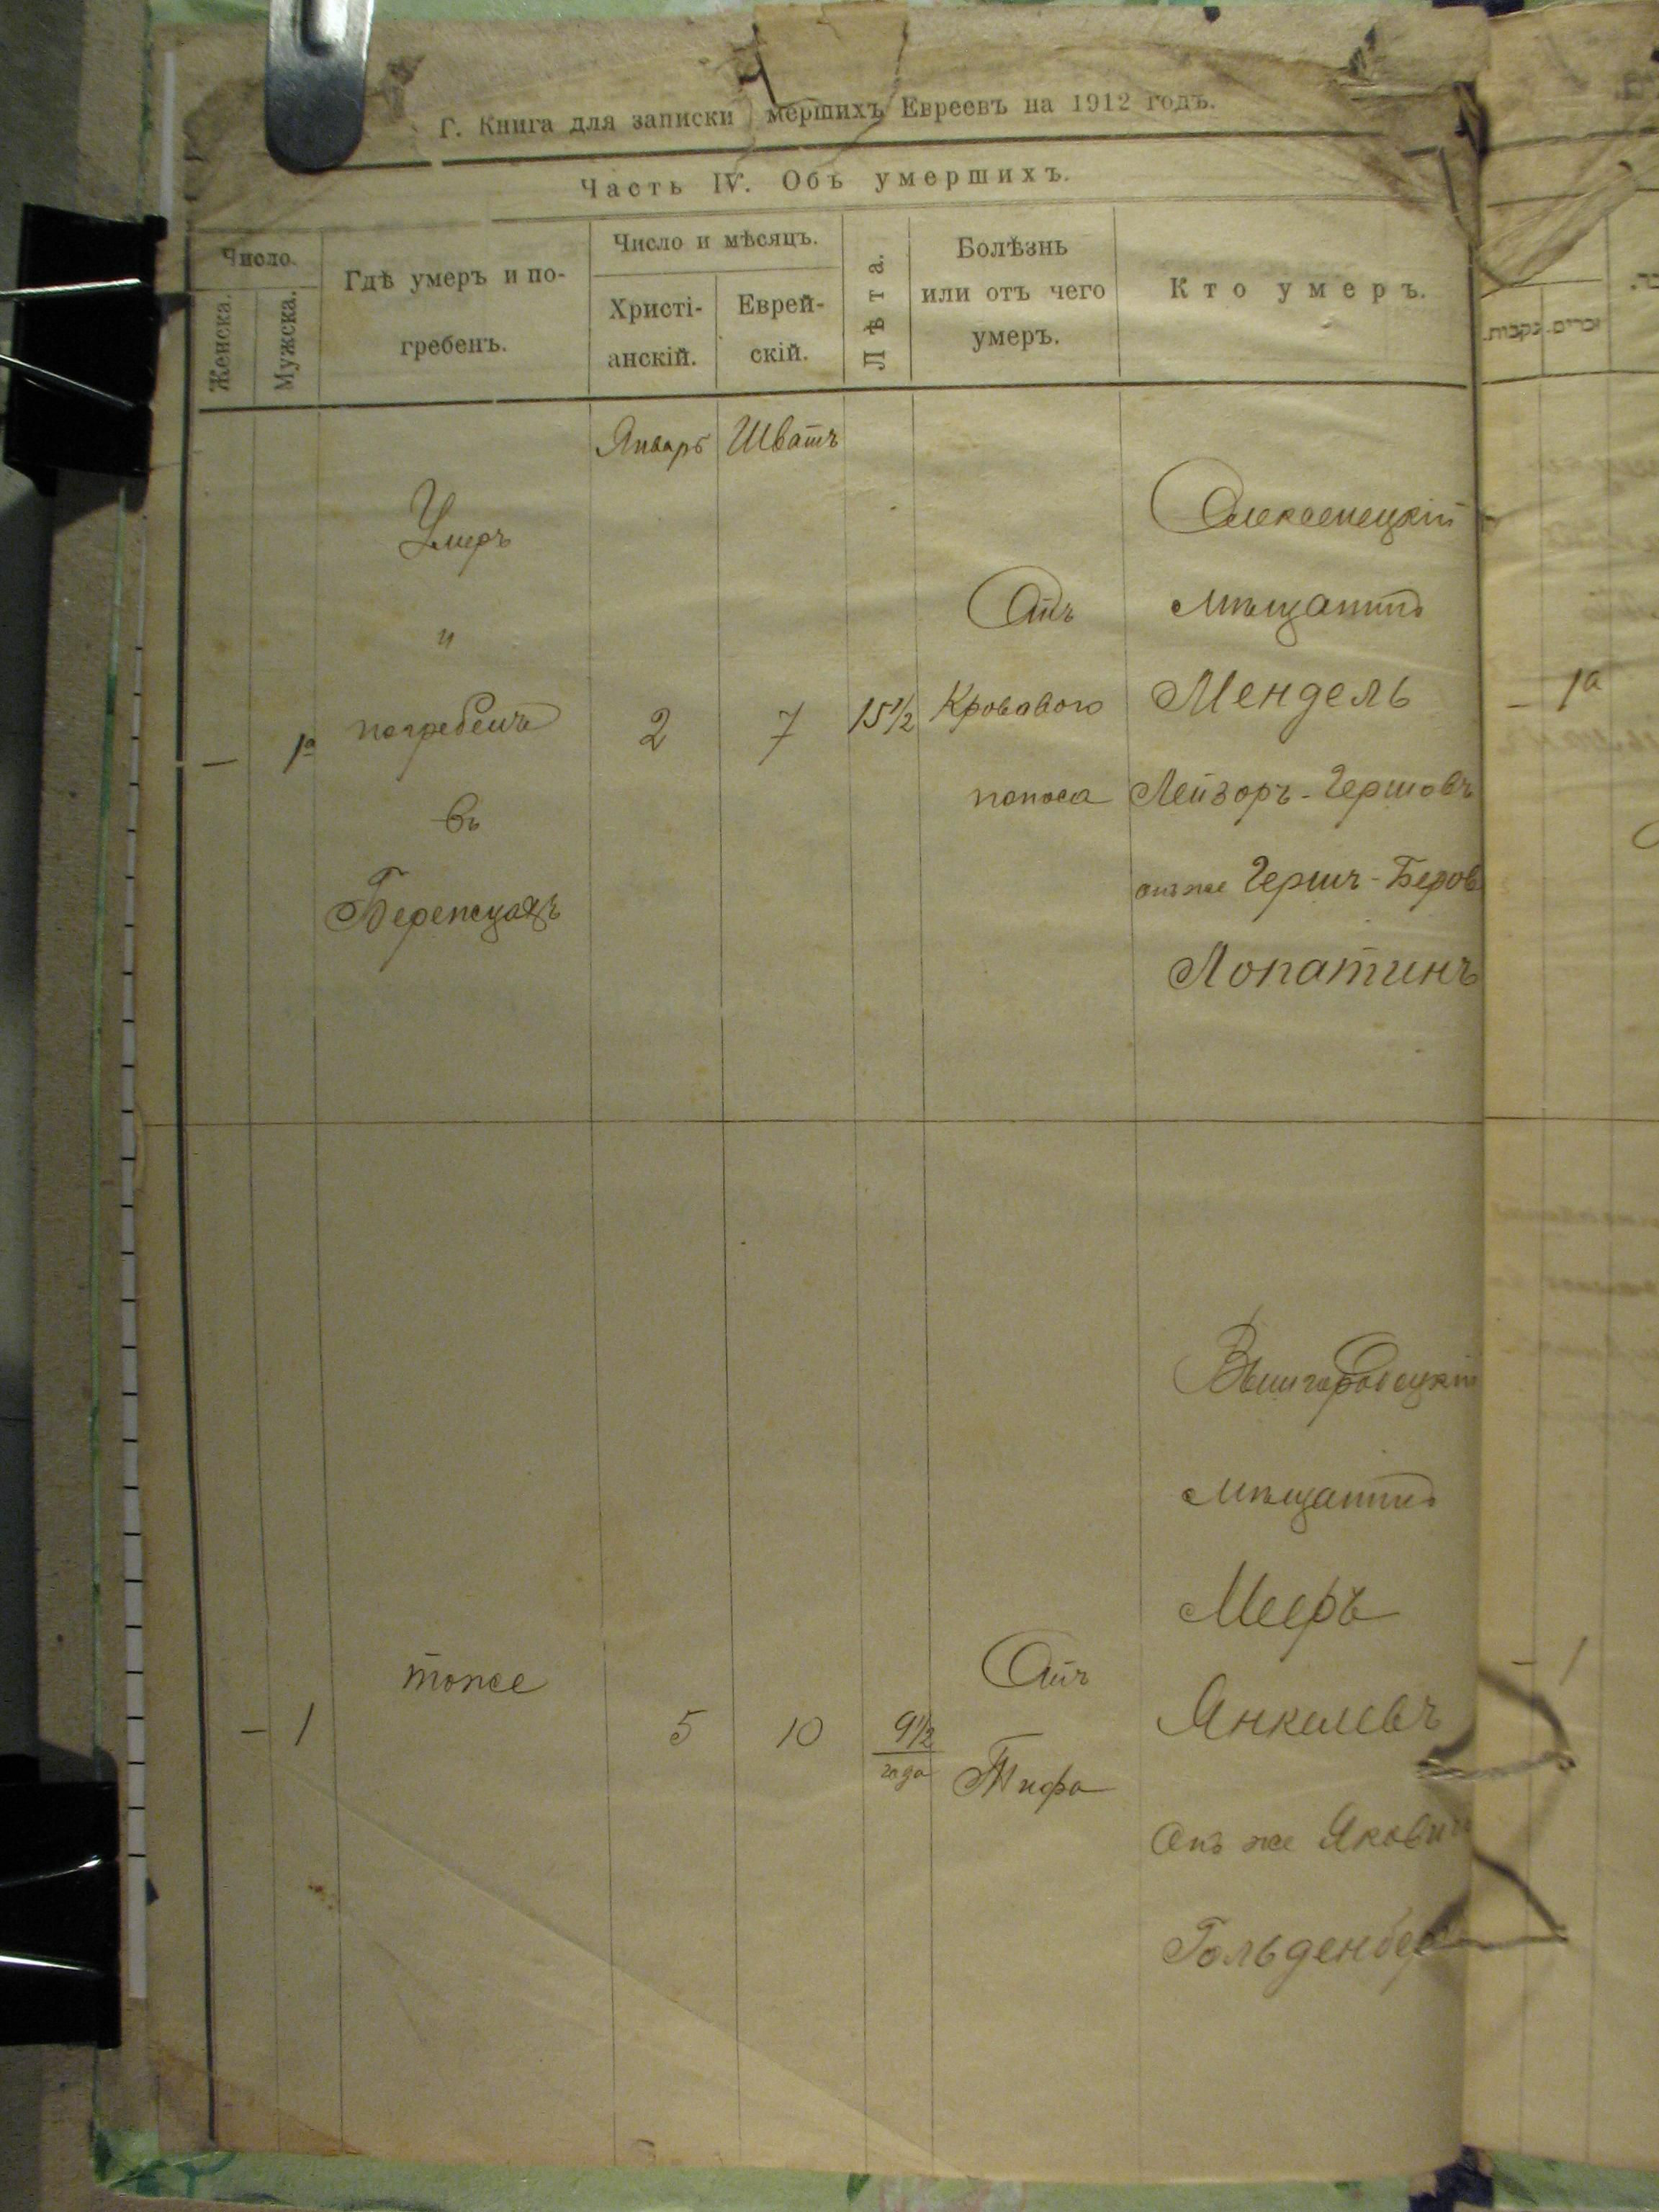 Г. Книга для записки мершихъ Евреевъ на 1912 годъ.
Часть IV. Объ умершихъ.
Число.
Женска.
Мужска.
Гдѣ умеръ и по-
гребенъ.
Число и мѣсяцъ.
Христі-
анскій.
Еврей-
скій.
Лѣта.
Болѣзнь
или отъ чего
умеръ.
Кто умеръ.
זכרים. נקבות.
Январь Шватъ
— 1а
Умеръ
и
погребенъ
въ
Бережцахъ
2
7
15 1/2
Отъ
Кроваваго
поноса
Алексенецкій
мѣщанинъ
Мендель
Лейзоръ-Гершовъ
онъ же Гершъ-Беров
Лопатинъ
— 1а
— 1
тоже
5
10
9 1/2
года
Отъ
Тифа
Вышгородецкій
мѣщанинъ
Мееръ
Янкелевъ
Онъ же
Гольденбер
— 1